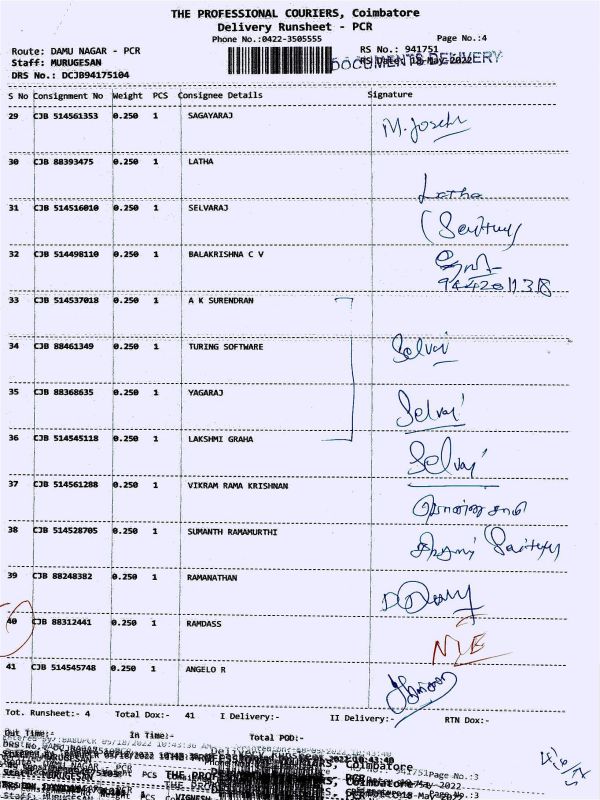 THE PROFESSIONAL COURIERS, Coimbatore
Delivery Runsheet - PCR
Phone No.:0422-3505555 Page No.:4
Route: DAMU NAGAR - PCR RS No.: 941751
Staff: MURUGESAN RS Date: 18-May-2022
DOCUMENTS DELIVERY
DRS No.: DCJB94175104
S No Consignment No Weight PCS Consignee Details Signature
29 CJB 514561353 0.250 1 SAGAYARAJ M. Joseph
30 CJB 88393475 0.250 1 LATHA Latha
31 CJB 514516010 0.250 1 SELVARAJ
32 CJB 514498110 0.250 1 BALAKRISHNA C V
9442011318
33 CJB 514537018 0.250 1 A K SURENDRAN
34 CJB 88461349 0.250 1 TURING SOFTWARE Selvaj
35 CJB 88368635 0.250 1 YAGARAJ Selvaj
36 CJB 514545118 0.250 1 LAKSHMI GRAHA Selvaj
37 CJB 514561288 0.250 1 VIKRAM RAMA KRISHNAN
38 CJB 514528705 0.250 1 SUMANTH RAMAMURTHI
39 CJB 88248382 0.250 1 RAMANATHAN
40 CJB 88312441 0.250 1 RAMDASS
41 CJB 514545748 0.250 1 ANGELO R
Tot. Runsheet:- 4 Total Dox:- 41 I Delivery:- II Delivery:- RTN Dox:-
Out Time:- In Time:- Total POD:-